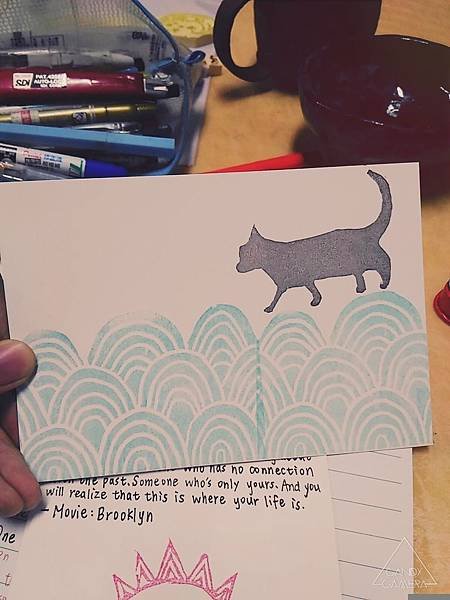 SDI
PAT.4295
AUTO-LOCK
who has no connection
the past. Someone who's only yours. And you
will realize that this is where your life is.
- Movie: Brooklyn
One
CANDY
CAMERA